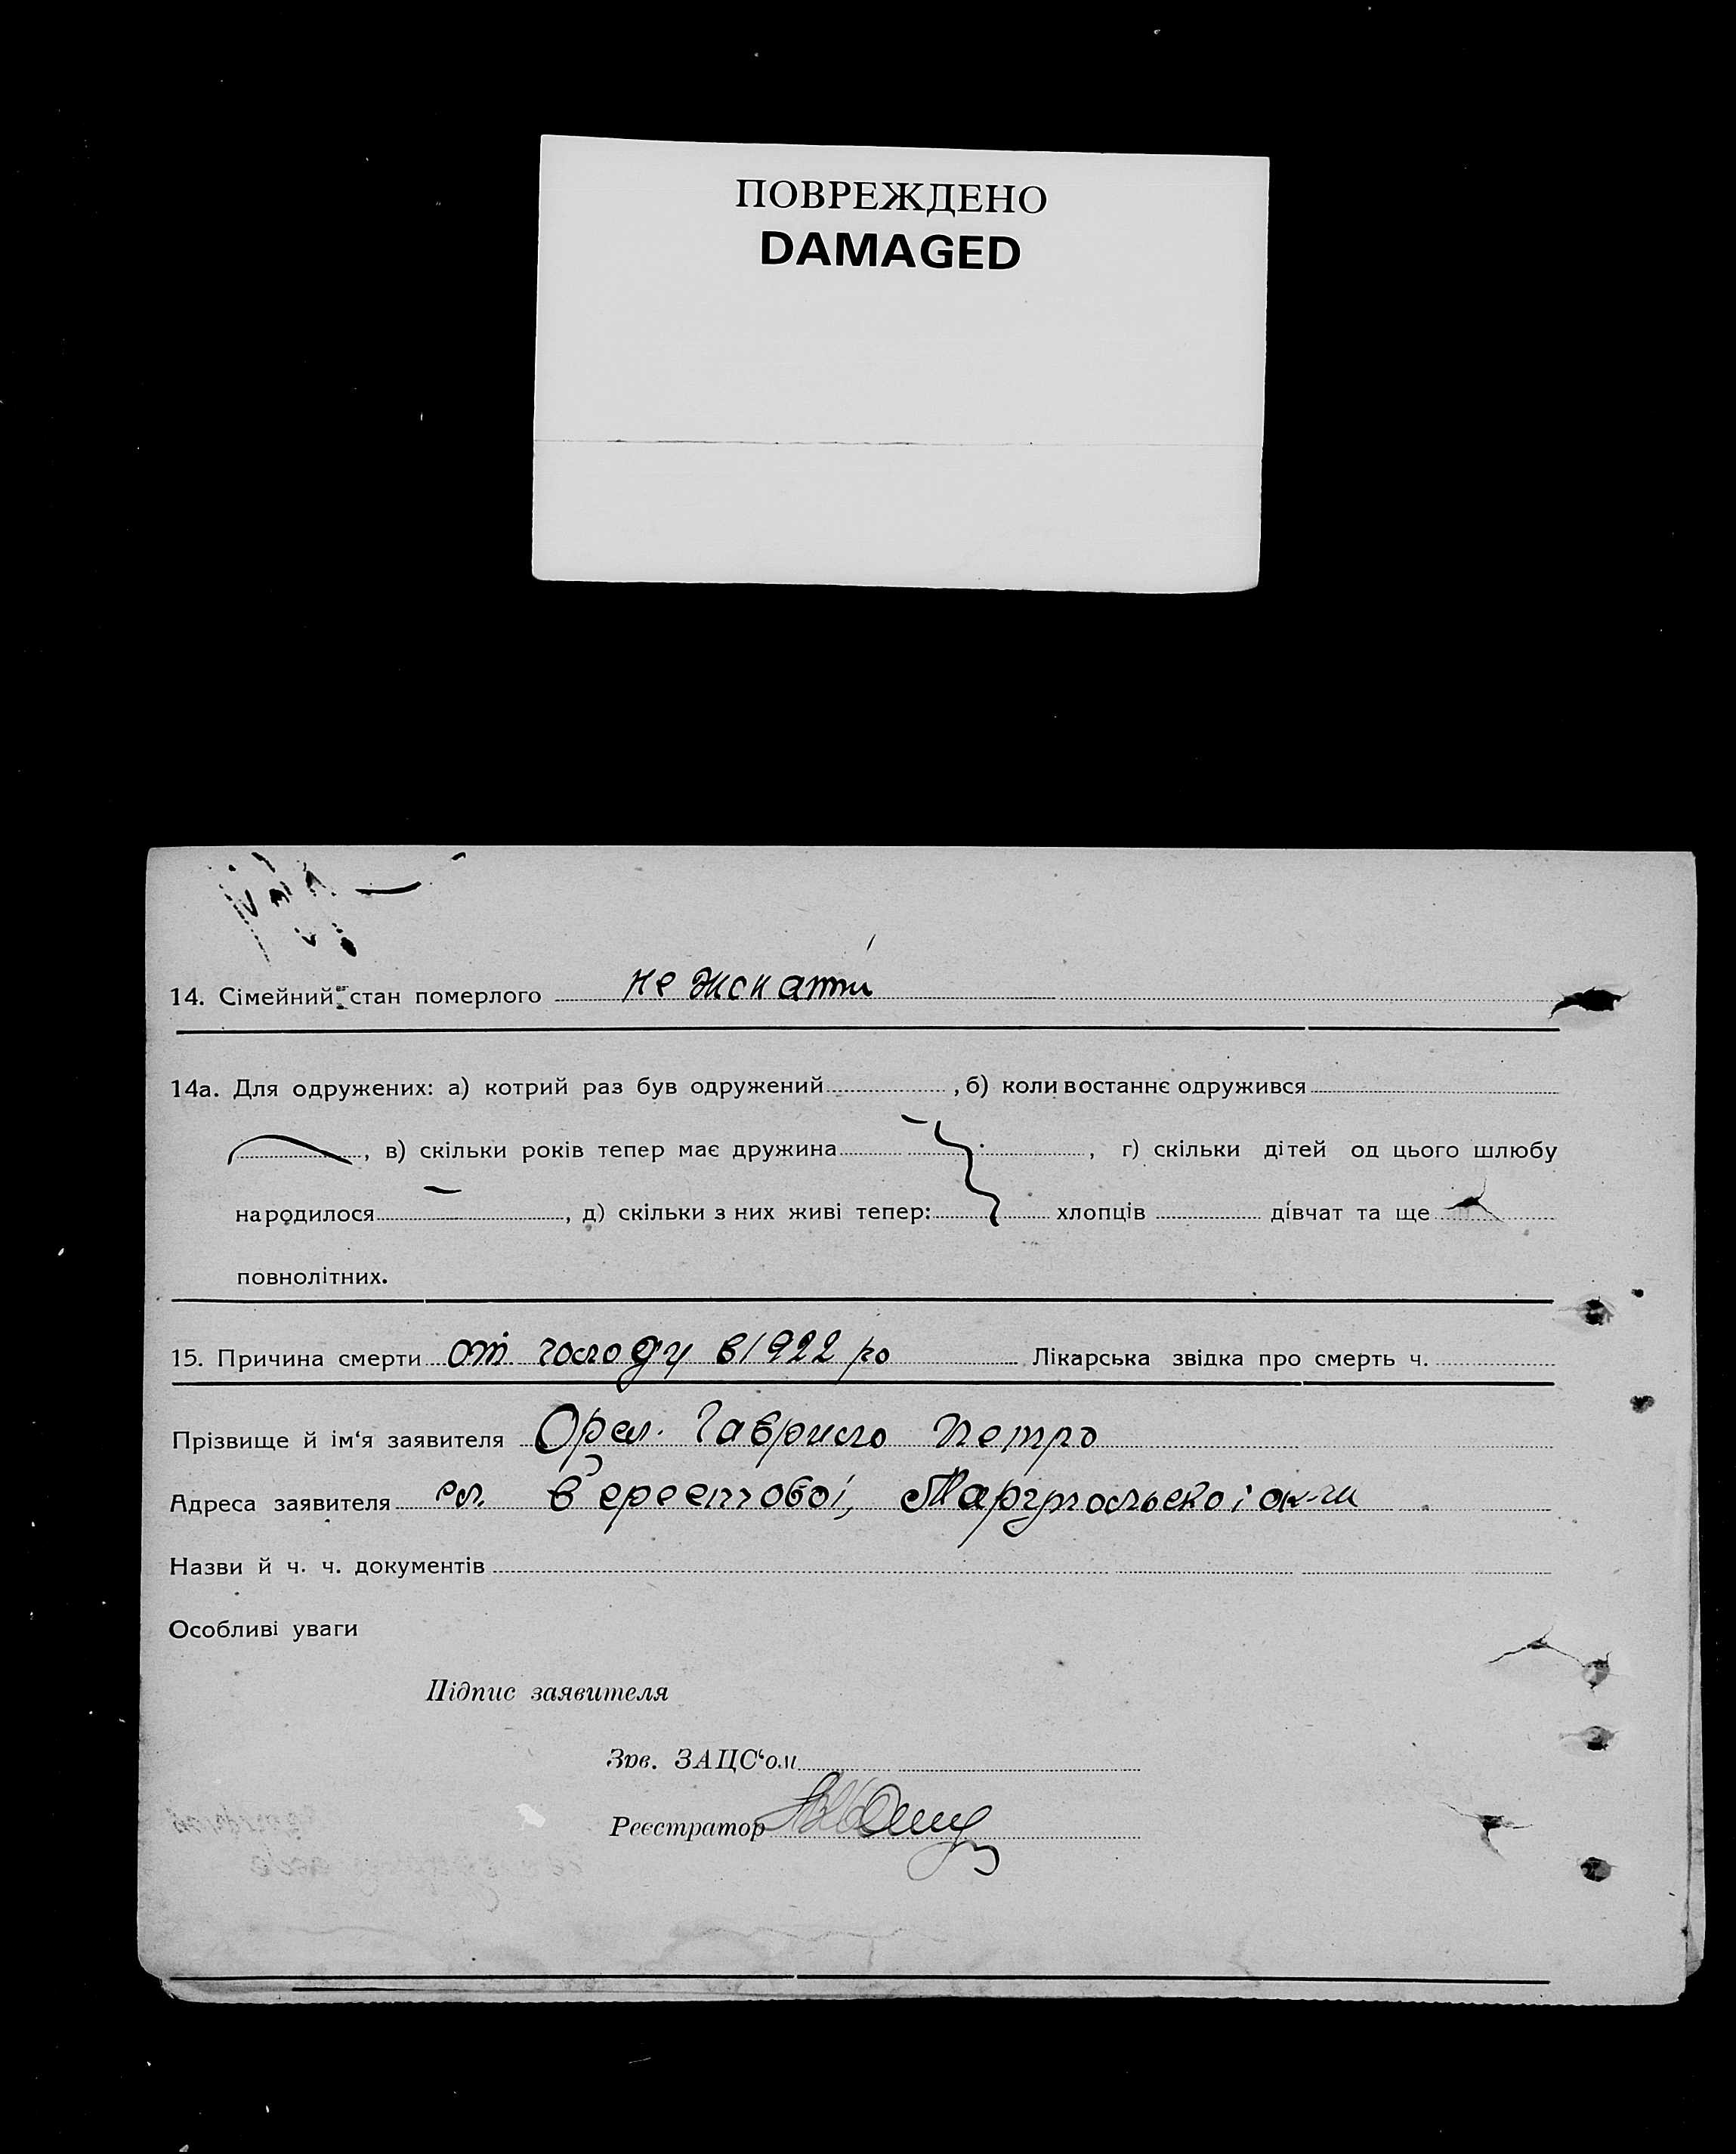 ПОВРЕЖДЕНО
DAMAGED
14. Сімейний стан померлого не жонатий
14а. Для одружених: а) котрий раз був одружений , б) коли востаннє одружився
, в) скільки років тепер має дружина , г) скільки дітей од цього шлюбу
народилося , д) скільки з них живі тепер: хлопців дівчат та ще
повнолітних.
15. Причина смерти от голоду в 1922 ро Лікарська звідка про смерть ч.
Прізвище й ім‘я заявителя Орел. Гаврило Петро
Адреса заявителя с. Берестової, Маріупольскоі ок-ги
Назви й ч. ч. документів
Особливі уваги
Підпис заявителя
Зав. ЗАЦС‘ом
Реєстратор